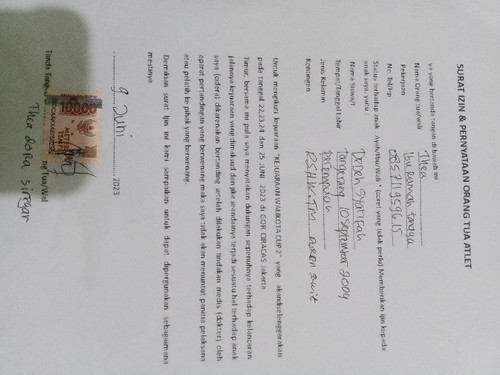 SURAT IZIN & PERNYATAAN ORANG TUA ATLET
ya yang bertanda tangan di bawah ini
Nama Orang tua/wali Thea
Pekerjaan Ibu Rumah tangga
No. Telp 085711959615
Status terhadap anak Ayah/Ibu/Wali * (coret yang tidak perlu) Memberikan ijin kepada
anak saya, yaitu :
Nama Siswa/i Syarifah
Tempat/Tanggal Lahir Tangerang 10 September 2009
Jenis Kelamin perempuan
Kontingen PSHKTM DUREN Sawit
Untuk mengikuti kejuaraan "KEJUARAAN WALIKOTA CUP 2" yang akan diselenggarakan
pada tanggal 22,23,24 dan 25 JUNI 2023 di GOR CIRACAS Jakarta
Timur, bersama ini pula saya menyatakan dukungan sepenuhnya terhadap kelancaran
jalannya kejuaraan yang dimaksud dan jika seandainya terjadi sesuatu hal terhadap anak
saya (cidera) dikarenakan bertanding setelah dilakukan tindakan medis (dokter) oleh
aparat pertandingan yang berwenang maka saya tidak akan menuntut panitia pelaksana
atau pelatih ke pihak yang berwenang.
Demikian surat ijin ini kami sampaikan untuk dapat dipergunakan sebagaimana
mestinya
9 Juni 2023
Tanda Tangan ng Tua/Wali
10000
METERAI
TEMPEL
Thea Dora siregar